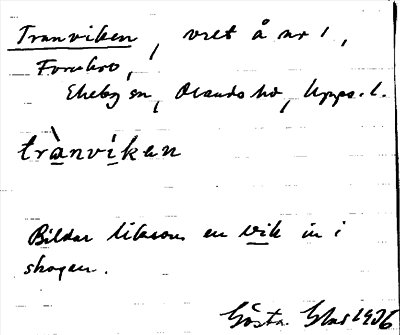 Tranviken, vret å nr 1,
Forsbro,
Ekeby sn, Olands hd, Upps. l.
trànvikan
Bildar liksom en vik in i
skogen.
Gösta 1936